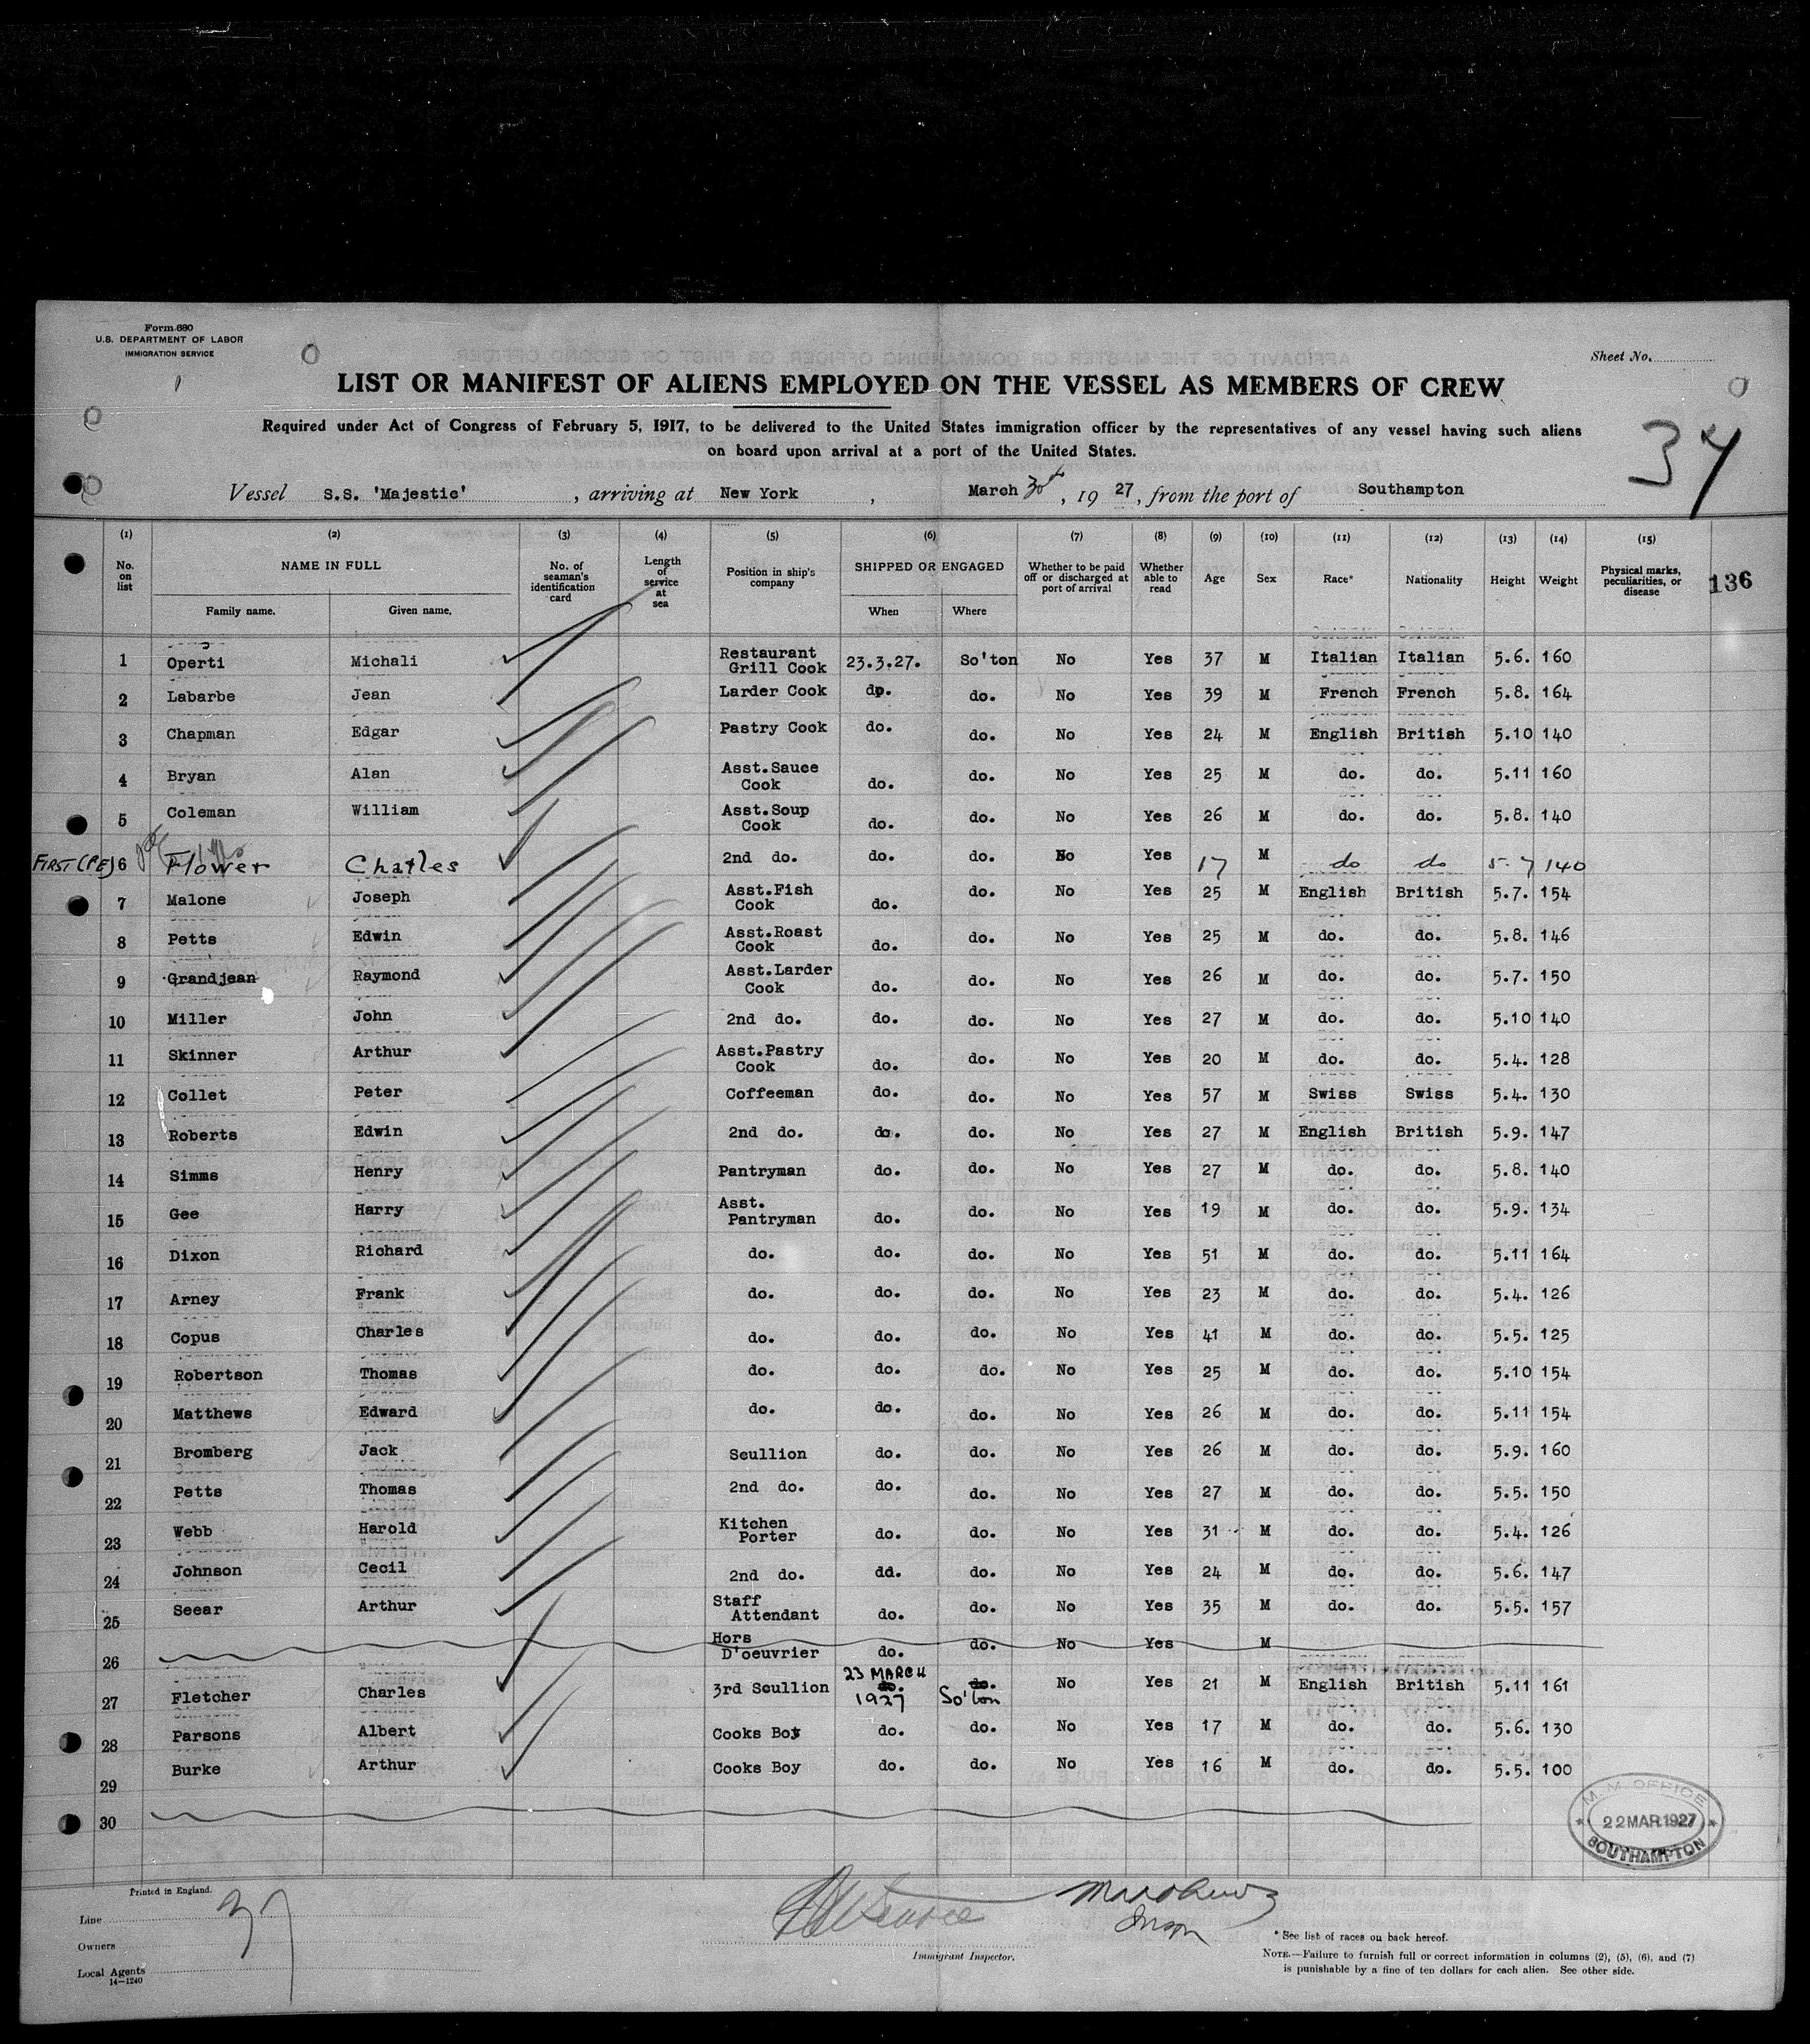 Form 680
U.S. DEPARTMENT OF LABOR
IMMIGRATION SERVICE
Sheet No.
LIST OR MANIFEST OF ALIENS EMPLOYED ON THE VESSEL AS MEMBERS OF CREW
Required under Act of Congress of February 5, 1917, to be delivered to the United States immigration officer by the representatives of any vessel having such aliens
on board upon arrival at a port of the United States.
34
Vessel S.S. 'Majestic', arriving at New York, March 30, 1927, from the port of Southampton
(1) (2) (3) (4) (5) (6) (7) (8) (9) (10) (11) (12) (13) (14) (15)
No. on list NAME IN FULL Family name. Given name. No. of seaman's identification card Length of service at sea Position in ship's company SHIPPED OR ENGAGED When Where Whether to be paid off or discharged at port of arrival Whether able to read Age Sex Race* Nationality Height Weight Physical marks, peculiarities, or disease 136
1 Operti Michali Restaurant Grill Cook 23.3.27. So'ton No Yes 37 M Italian Italian 5.6. 160
2 Labarbe Jean Larder Cook do. do. No Yes 39 M French French 5.8. 164
3 Chapman Edgar Pastry Cook do. do. No Yes 24 M English British 5.10 140
4 Bryan Alan Asst.Sauce Cook do. do. No Yes 25 M do. do. 5.11 160
5 Coleman William Asst.Soup Cook do. do. No Yes 26 M do. do. 5.8. 140
FIRST (PE) 6 Flower Charles 2nd do. do. do. No Yes 17 M do do 5.7 140
7 Malone Joseph Asst.Fish Cook do. do. No Yes 25 M English British 5.7. 154
8 Petts Edwin Asst.Roast Cook do. do. No Yes 25 M do. do. 5.8. 146
9 Grandjean Raymond Asst.Larder Cook do. do. No Yes 26 M do. do. 5.7. 150
10 Miller John 2nd do. do. do. No Yes 27 M do. do. 5.10 140
11 Skinner Arthur Asst.Pastry Cook do. do. No Yes 20 M do. do. 5.4. 128
12 Collet Peter Coffeeman do. do. No Yes 57 M Swiss Swiss 5.4. 130
13 Roberts Edwin 2nd do. do. do. No Yes 27 M English British 5.9. 147
14 Simms Henry Pantryman do. do. No Yes 27 M do. do. 5.8. 140
15 Gee Harry Asst. Pantryman do. do. No Yes 19 M do. do. 5.9. 134
16 Dixon Richard do. do. do. No Yes 51 M do. do. 5.11 164
17 Arney Frank do. do. do. No Yes 23 M do. do. 5.4. 126
18 Copus Charles do. do. do. No Yes 41 M do. do. 5.5. 125
19 Robertson Thomas do. do. do. No Yes 25 M do. do. 5.10 154
20 Matthews Edward do. do. do. No Yes 26 M do. do. 5.11 154
21 Bromberg Jack Scullion do. do. No Yes 26 M do. do. 5.9. 160
22 Petts Thomas 2nd do. do. do. No Yes 27 M do. do. 5.5. 150
23 Webb Harold Kitchen Porter do. do. No Yes 31 M do. do. 5.4. 126
24 Johnson Cecil 2nd do. dd. do. No Yes 24 M do. do. 5.6. 147
25 Seear Arthur Staff Attendant do. do. No Yes 35 M do. do. 5.5. 157
26 Hors D'oeuvrier do. do. No Yes M
27 Fletcher Charles 3rd Scullion do. 23 MARCH 1927 do. So'ton No Yes 21 M English British 5.11 161
28 Parsons Albert Cooks Boy do. do. No Yes 17 M do. do. 5.6. 130
29 Burke Arthur Cooks Boy do. do. No Yes 16 M do. do. 5.5. 100
30
M.M. OFFICE
22 MAR 1927
SOUTHAMPTON
Printed in England.
Line
Owners
Local Agents
14—1240
Immigrant Inspector.
* See list of races on back hereof.
NOTE.—Failure to furnish full or correct information in columns (2), (5), (6), and (7)
is punishable by a fine of ten dollars for each alien. See other side.